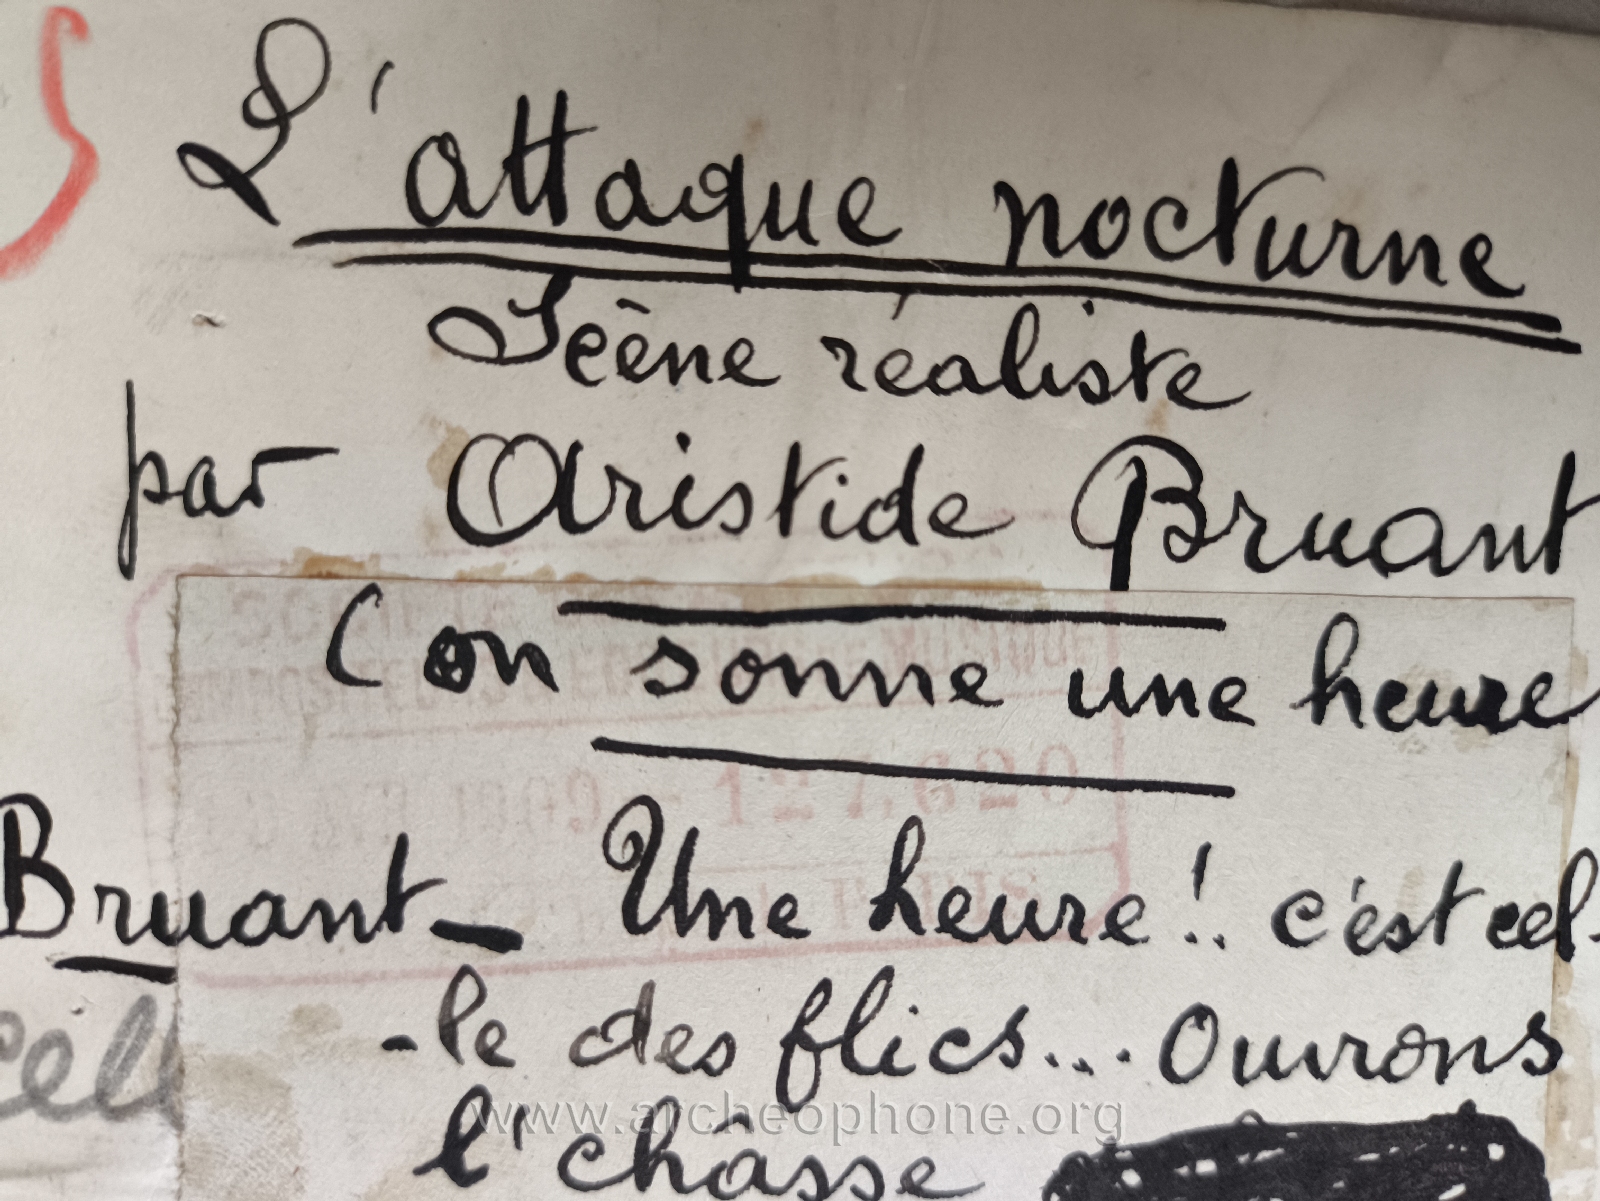 L'attaque nocturne
Scène réaliste
par Aristide Bruant
(on sonne une heure
Bruant - Une heure!.. c'est cel-
-le des flics... Ouvrons
l'châsse
www.archeophone.org
127.620